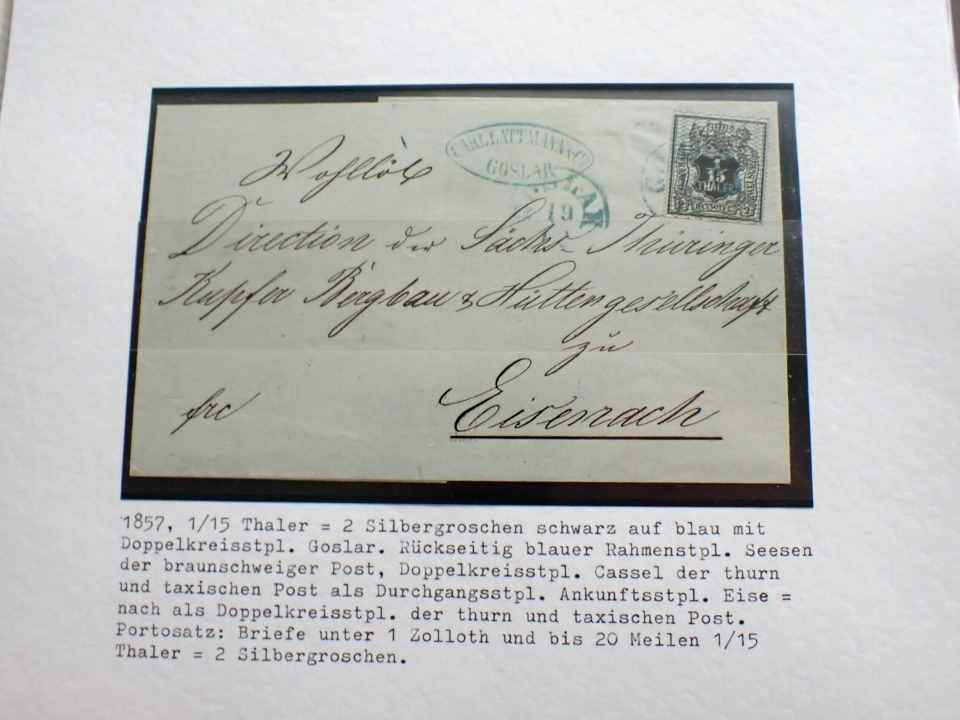 CARL LATTMANN & Co
GOSLAR
19
1
15
THALER
Wohllöb
Direction der Sächs- Thüringer
Kupfer Bergbau & Hüttengesellschaft
zu
frc
Eisenach
1857, 1/15 Thaler = 2 Silbergroschen schwarz auf blau mit
Doppelkreisstpl. Goslar. Rückseitig blauer Rahmenstpl. Seesen
der braunschweiger Post, Doppelkreisstpl. Cassel der thurn
und taxischen Post als Durchgangsstpl. Ankunftsstpl. Eise =
nach als Doppelkreisstpl. der thurn und taxischen Post.
Portosatz: Briefe unter 1 Zolloth und bis 20 Meilen 1/15
Thaler = 2 Silbergroschen.